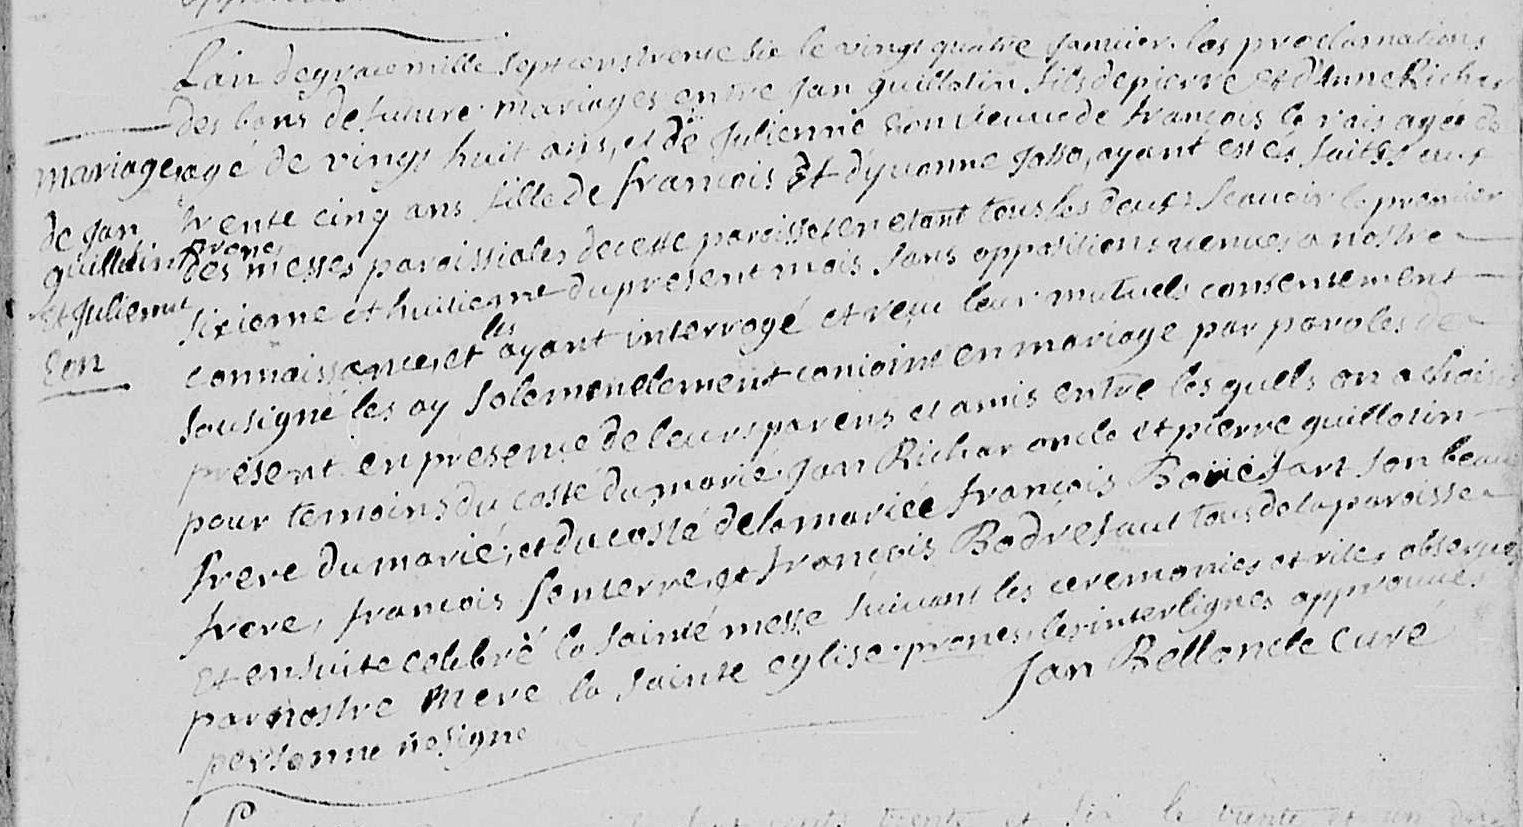 L'an de grace mille sept cens trente six le vingt quatre janvier. les proclamations
des bans de future mariages entre jan guillotin fils de pierre et d'Anne Richar
agé de vingt huit ans, et de julienne Eon veuve de françois le rais agée de
trente cinq ans fille de francois et d'yuonne josso, ayant estés faittes aux
prones
des messes paroissiales de cette paroisse en estant tous les deux scauoir le premier
sixieme et huitieme du present mois sans oppositions venues a nostre
connoissance, et les ayant interrogé et reçu leur mutuels consentement
sousigné les ay solemnellement conioint en mariage par paroles de
présent en presence de leurs parens et amis entre les quells on a choisis
pour temoins du costé du marié. jan Richar oncle et pierre guillotin
frere du marié, et du costé de la mariée françois Boüéxart son beau
frere, francois senterre, et françois Bodresaul tous de la paroisse
et ensuite celebré la sainte messe suivant les ceremonies et rites observés
par nostre mere la sainte eglise. prones, les interlignes approuvés
personne ne signe
jan Bellon de curé
mariage
de jan
guillotin
et julienne
Eon